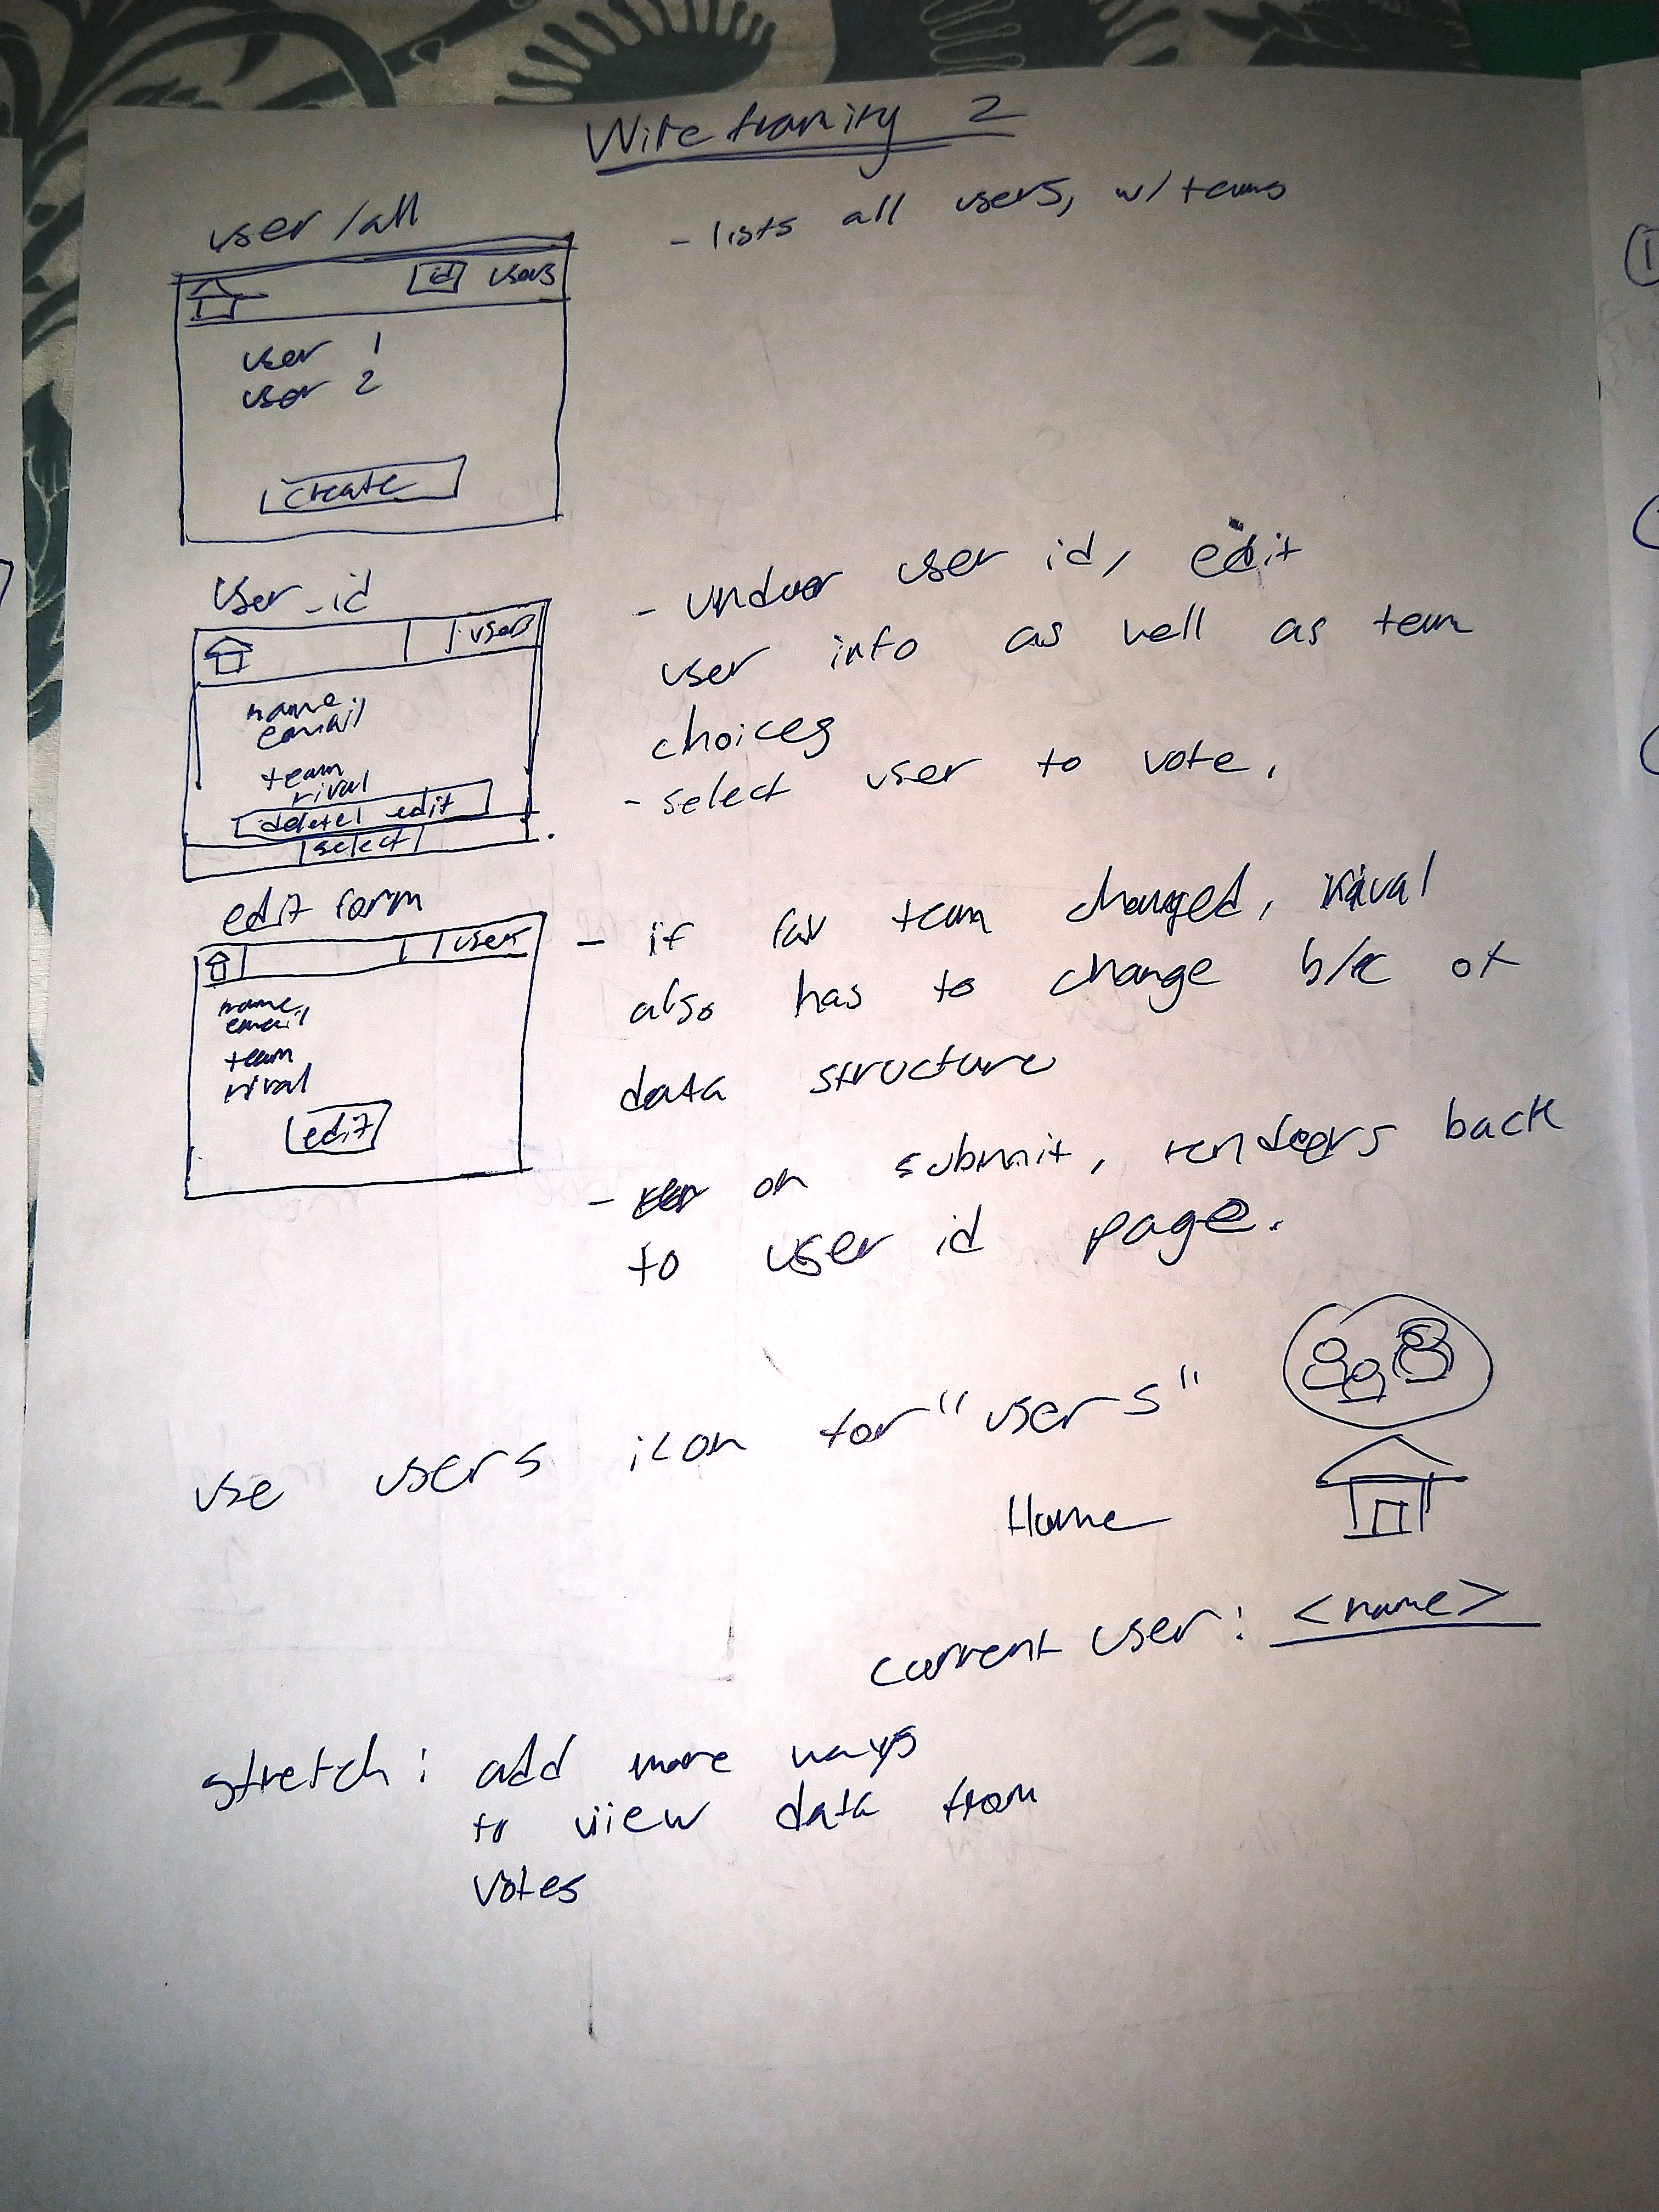 Wireframing 2
user/all
- lists all users, w/ teams
id users
user 1
user 2
create
user_id
users
name
email
team
rival
delete edit
select
- under user id, edit
user info as well as team
choices
- select user to vote.
edit form
users
name
email
team
rival
edit
- if fav team changed, rival
also has to change b/c of
data structure
- on submit, renders back
to user id page.
use users icon for "users"
Home
current user: <name>
stretch: add more ways
to view data from
votes